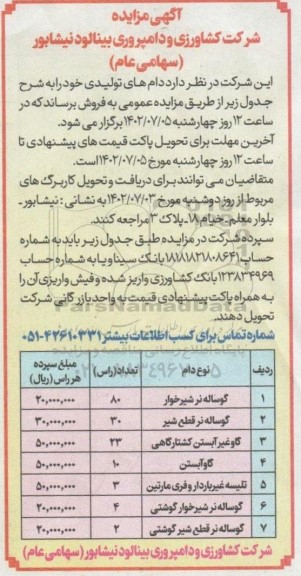 آگهی مزایده
شرکت کشاورزی و دامپروری بینالود نیشابور
(سهامی عام)
این شرکت در نظر دارد دام های تولیدی خود را به شرح
جدول زیر از طریق مزایده عمومی به فروش برساند که در
ساعت ۱۲ روز چهارشنبه ۱۴۰۲/۰۷/۰۵ برگزار می شود.
آخرین مهلت برای تحویل پاکت قیمت های پیشنهادی تا
ساعت ۱۲ روز چهارشنبه مورخ ۱۴۰۲/۰۷/۰۵ است.
متقاضیان می توانند برای دریافت و تحویل کاربرگ های
مربوط از روز دوشنبه مورخ ۱۴۰۲/۰۷/۰۳ به نشانی : نیشابور -
بلوار معلم - خیام ۱۸ - پلاک ۳ مراجعه کنند.
سپرده شرکت در مزایده طبق جدول زیر باید به شماره
بانک سینا و یا به شماره حساب
۱۲۳۸۳۴۹۶۹ بانک کشاورزی واریز شده و فیش واریزی آن را
به همراه پاکت پیشنهادی قیمت به واحد بازرگانی شرکت
تحویل دهند.
شماره تماس برای کسب اطلاعات بیشتر ۴۲۶۱۰۳۳۱-۰۵۱
ردیف نوع دام تعداد(راس) مبلغ سپرده هر راس (ریال)
۱ گوساله نر شیرخوار ۸۰ ۲۰,۰۰۰,۰۰۰
۲ گوساله نر قطع شیر ۳۰ ۳۰,۰۰۰,۰۰۰
۳ گاو غیر آبستن کشتارگاهی ۲۳ ۵۰,۰۰۰,۰۰۰
۴ گاو آبستن ۱۰ ۵۰,۰۰۰,۰۰۰
۵ تلیسه غیرباردار و فری مارتین ۳ ۵۰,۰۰۰,۰۰۰
۶ گوساله نر شیرخوار گوشتی ۴ ۲۰,۰۰۰,۰۰۰
۷ گوساله نر قطع شیر گوشتی ۲ ۲۰,۰۰۰,۰۰۰
شرکت کشاورزی و دامپروری بینالود نیشابور (سهامی عام)